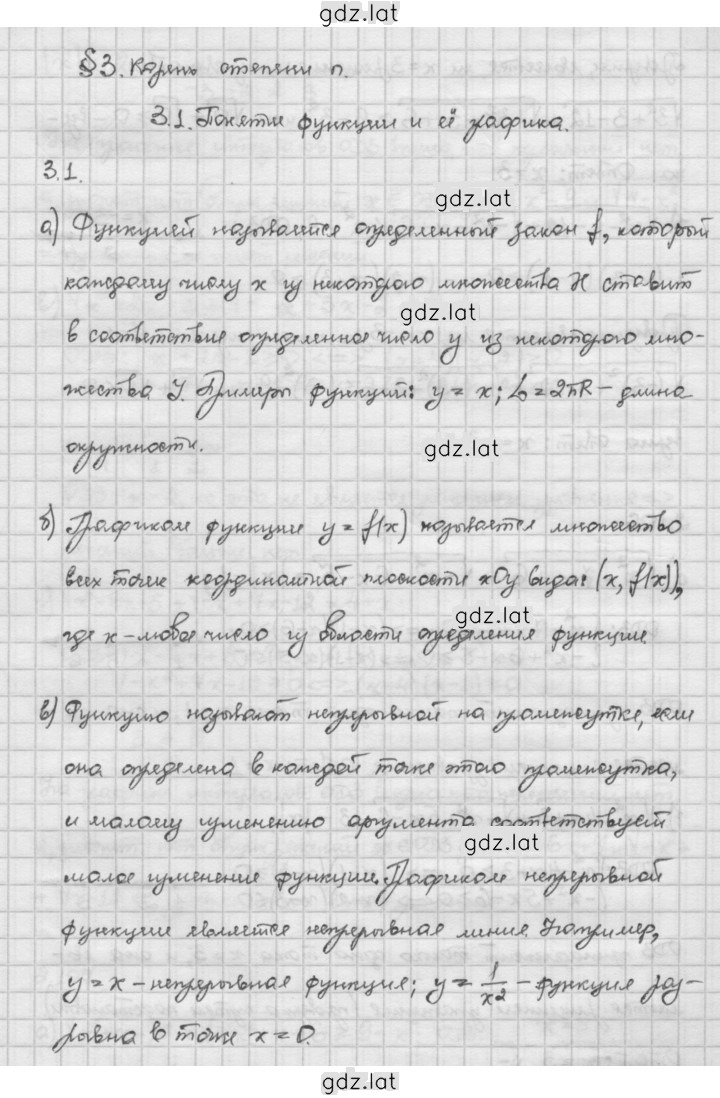 gdz.lat
§3. Корень степени n.
3.1. Понятие функции и её графика.
3.1.
gdz.lat
а) Функцией называется определенный закон f, который
каждому числу x из некоторого множества X ставит
gdz.lat
в соответствие определенное число y из некоторого мно-
жества Y. Примеры функций: y = x; L = 2πR – длина
окружности.
gdz.lat
б) Графиком функции y = f(x) называется множество
всех точек координатной плоскости xOy вида: (x, f(x)),
gdz.lat
где x – любое число из области определения функции.
в) Функцию называют непрерывной на промежутке, если
она определена в каждой точке этого промежутка,
и малому изменению аргумента соответствует
gdz.lat
малое изменение функции. Графиком непрерывной
функции является непрерывная линия. Например,
y = x – непрерывная функция; y = 1/x² – функция раз-
рывна в точке x = 0.
gdz.lat